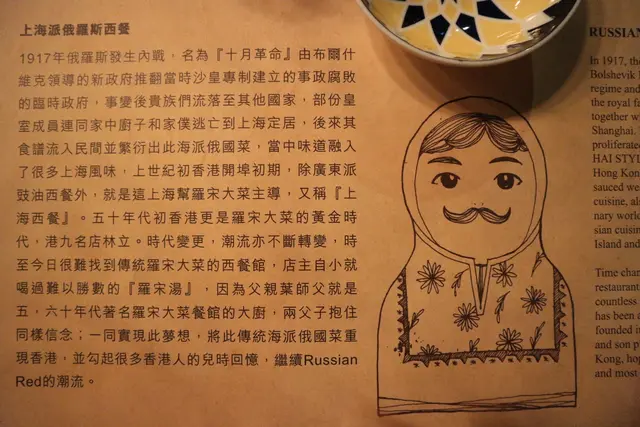 上海派俄羅斯西餐
1917年俄羅斯發生內戰，名為『十月革命』由布爾什
維克領導的新政府推翻當時沙皇專制建立的事政腐敗
的臨時政府，事變後貴族們流落至其他國家，部份皇
室成員連同家中廚子和家僕逃亡到上海定居，後來其
食譜流入民間並繁衍出此海派俄國菜，當中味道融入
了很多上海風味，上世紀初香港開埠初期，除廣東派
豉油西餐外，就是這上海幫羅宋大菜主導，又稱『上
海西餐』。五十年代初香港更是羅宋大菜的黃金時
代，港九名店林立。時代變更，潮流亦不斷轉變，時
至今日很難找到傳統羅宋大菜的西餐館，店主自小就
喝過難以勝數的『羅宋湯』，因為父親葉師父就是
五，六十年代著名羅宋大菜餐館的大廚，兩父子抱住
同樣信念；一同實現此夢想，將此傳統海派俄國菜重
現香港，並勾起很多香港人的兒時回憶，繼續Russian
Red的潮流。
RUSSIAN
In 1917, the
Bolshevik
regime and
the royal fa
together w
Shanghai.
proliferated
HAI STYL
Hong Kong
sauced we
cuisine, al
nary world
sian cuisin
Island and
Time chan
restaurant
countless
has been
founded i
and son p
Kong, hop
and most